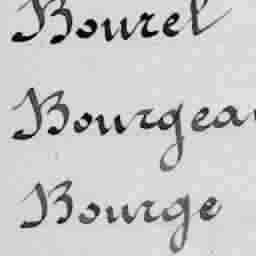 Bourel
Bourgea
Bourge